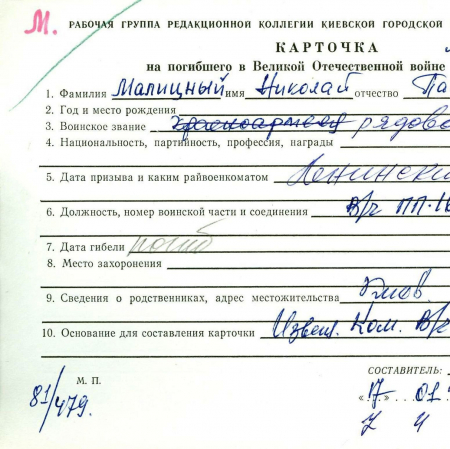 М. РАБОЧАЯ ГРУППА РЕДАКЦИОННОЙ КОЛЛЕГИИ КИЕВСКОЙ ГОРОДСКОЙ
КАРТОЧКА
на погибшего в Великой Отечественной войне
1. Фамилия Малицный имя Николай отчество Па
2. Год и место рождения
3. Воинское звание красноармеец рядово
4. Национальность, партийность, профессия, награды
5. Дата призыва и каким райвоенкоматом Ленински
6. Должность, номер воинской части и соединения в/ч ПП-16
7. Дата гибели погиб
8. Место захоронения
9. Сведения о родственниках, адрес местожительства
10. Основание для составления карточки Извещ. Ком. в/ч
СОСТАВИТЕЛЬ:
М. П.
81/479.
"17" 01
7 4